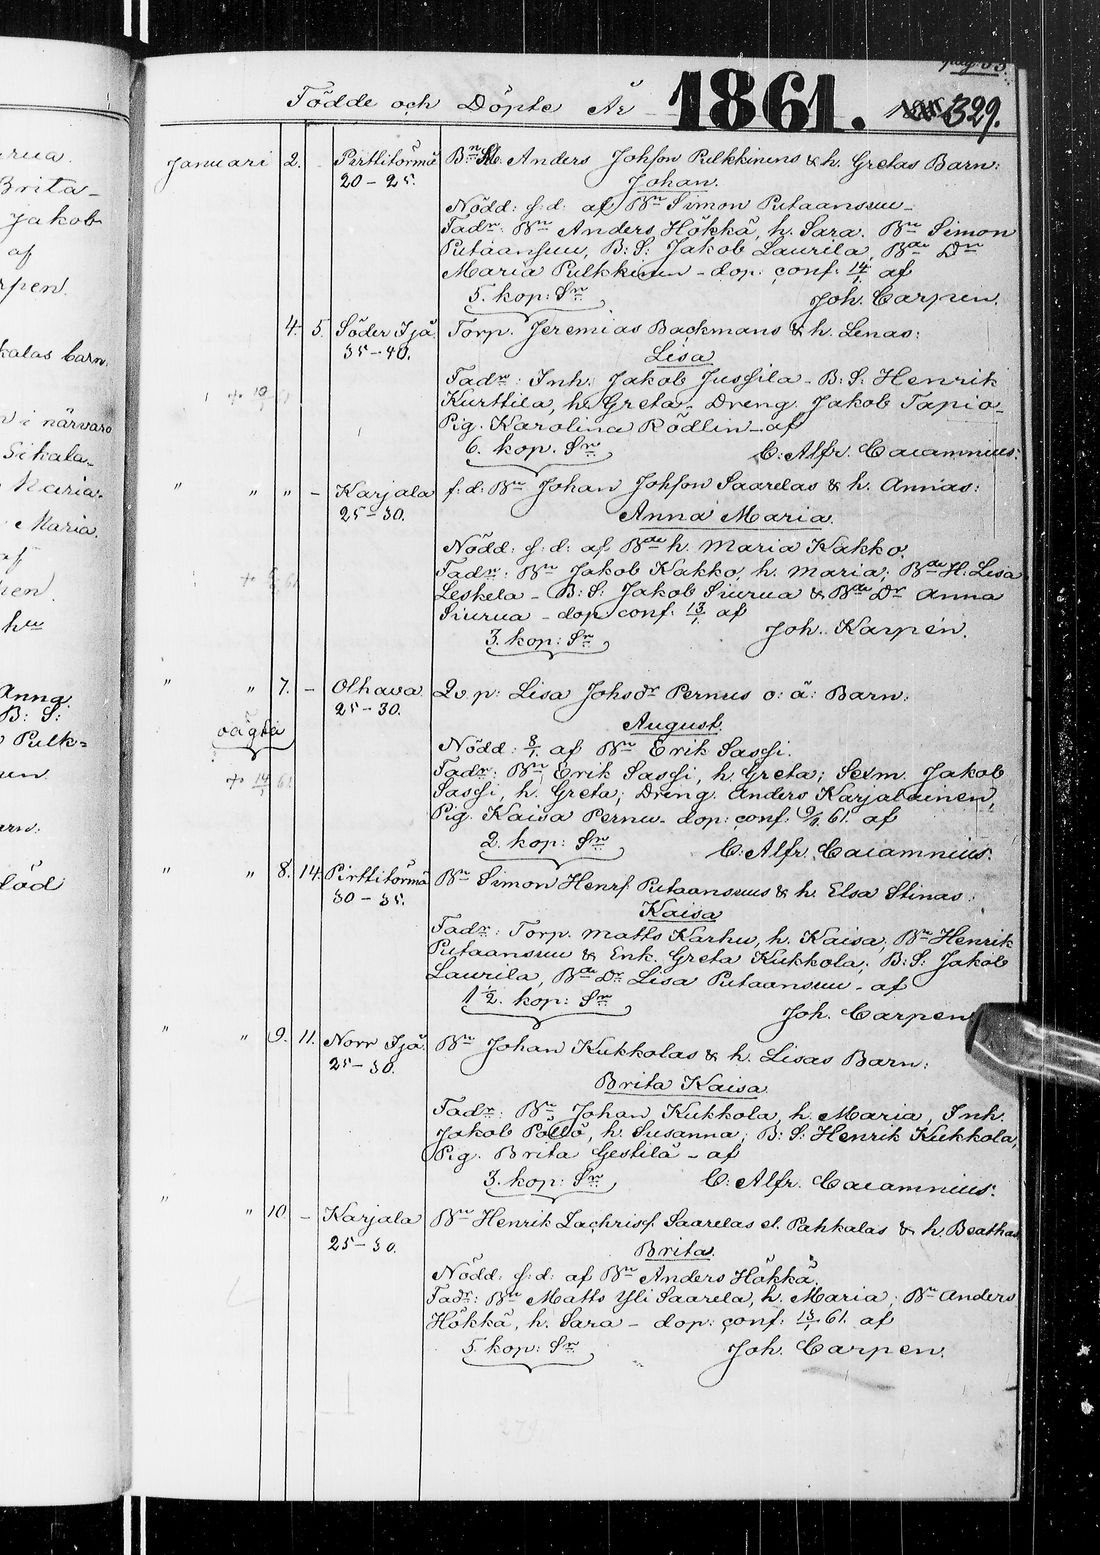 rua.
Brita-
Jakob
af
rpen.
kalas barn.
n i närvaro
Sikala-
Maria.
Maria.
af
hen
hu
Anna
B: S:
Pulk=
nen
arn:
död
pag. 53.
Födde och Döpte År 1861. 329.
Januari 2. Pirttitörmä Bn Anders Johsson Pulkkinens & h. Gretas Barn:
20-25. Johan.
Nödd: s: d: af Bn Simon Putaansuu-
Fadr: Bn Anders Hökkä, h. Sara. Bn Simon
Putaansuu, B: S: Jakob Laurila, Bde Dr
Maria Pulkkinen - dop: conf: 14/1 af
5. kop: Sr Joh. Carpen.
4. 5. Söder Ijå Torp. Jeremias Backmans & h. Lenas:
35-40. Lisa
Fadr: Inh: Jakob Jussila - B: S: Henrik
Kurttila, h. Greta - Dreng. Jakob Tapio-
Pig. Karolina Rödlin - af
6. kop. Sr C: Alfr. Caiamnius:
" " " - Karjala f: d: Bn Johan Johsson Saarelas & h. Annas:
25-30. Anna Maria.
Nödd: s: d: af Bde h. Maria Kakko.
Fadr: Bn Jakob Kakko, h. Maria; Bde H. Lisa
Leskela - B: S: Jakob Siurua & Bde Dr Anna
Siurua - dop conf: 13/1 af
3. kop: Sr Joh. Karpén.
" " 7. - Olhava Qv. p: Lisa Johsdr Pernus o: ä: Barn:
25-30. August.
oägta Nödd: 8/1 af Bn Erik Sassi.
+ 14/ 61 Fadr: Bn Erik Sassi, h. Greta; Sexm. Jakob
Sassi, h. Greta; Dreng. Anders Karjalainen,
Pig. Kaisa Pernu - dop: conf: 9/1 61. af
2. kop: Sr C: Alfr. Caiamnius:
" " 8. 14. Pirttitörmä Bn Simon Henrs. Putaansuus & h. Elsa Stinas:
30-35. Kaisa
Fadr: Torp. Matts Karhu, h. Kaisa, Bn Henrik
Putaansuu & Enk. Greta Kukkola; B: S: Jakob
Laurila, Bde Dr Lisa Putaansuu - af
1 1/2. kop: Sr Joh. Carpen
" " 9. 11. Norr Ijå. Bn Johan Kukkolas & h. Lisas Barn:
25-30. Brita Kaisa
Fadr: Bn Johan Kukkola, h. Maria, Inh.
Jakob Pöllö, h. Susanna; B: S: Henrik Kukkola,
Pig. Brita Gestilä - af
3. kop: Sr C: Alfr. Caiamnius:
" " 10. - Karjala Bn Henrik Zachriss. Saarelas el. Pahkalas & h. Beathas
25-30. Brita.
Nödd: s: d: af Bn Anders Hökkä.
Fadr: Bn Matts Yli Saarela, h. Maria; Bn Anders
Hökkä, h. Sara - dop: conf: 13/1 61. af
5. kop: Sr Joh. Carpen.
279